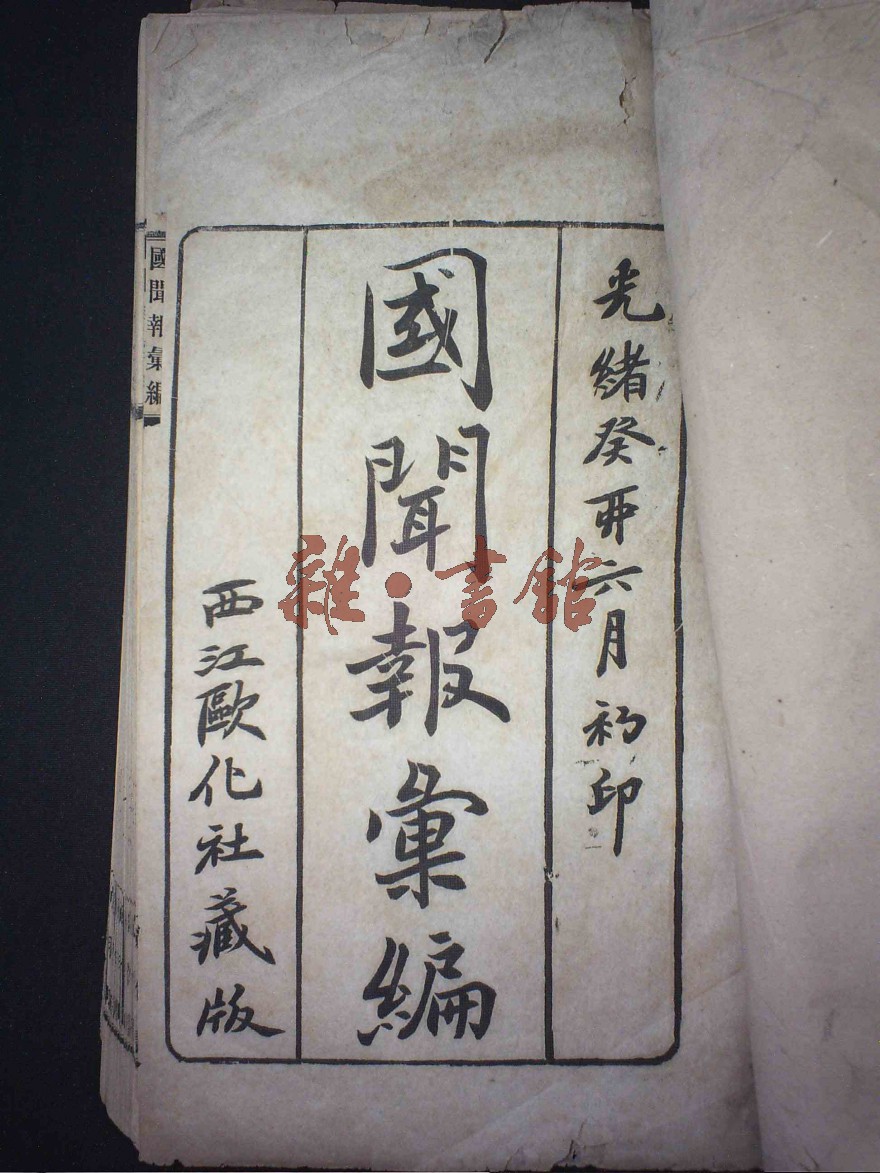 光緒癸丣六月初印
國聞報彙編
西江歐化社藏版
國聞報彙編
雜·書館